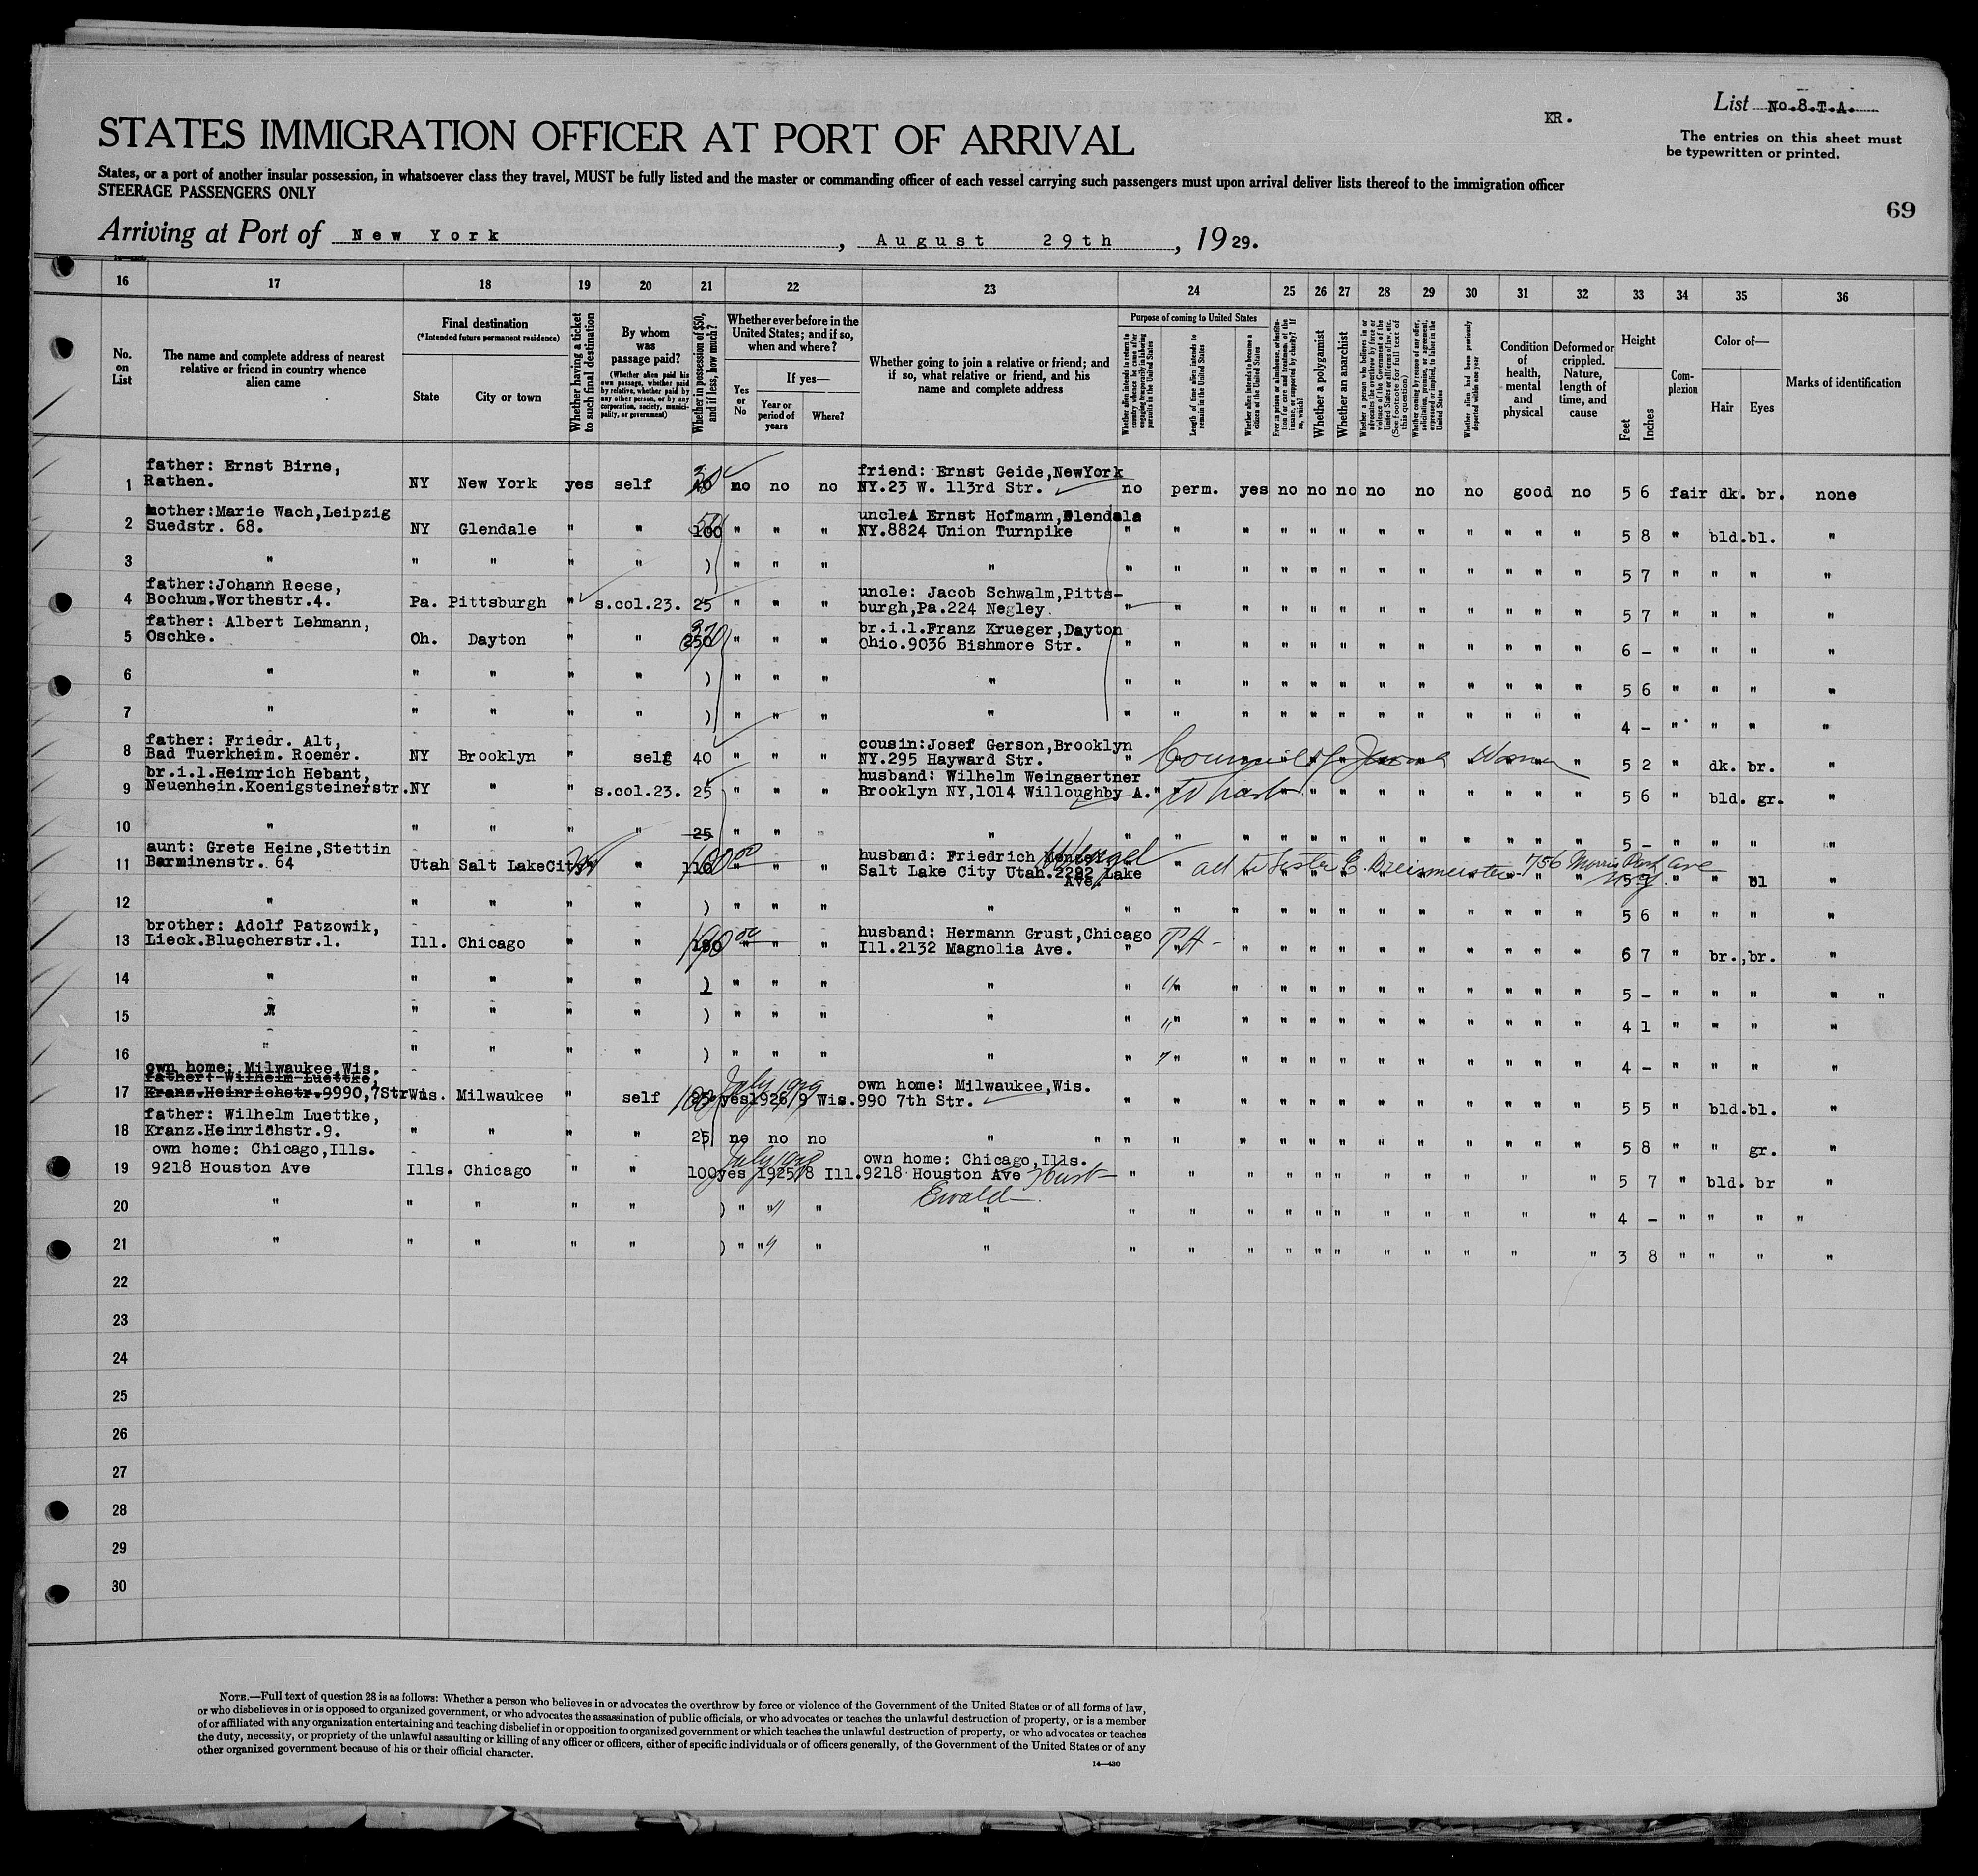 List No.8.T.A.
KR.
The entries on this sheet must
be typewritten or printed.
STATES IMMIGRATION OFFICER AT PORT OF ARRIVAL
States, or a port of another insular possession, in whatsoever class they travel, MUST be fully listed and the master or commanding officer of each vessel carrying such passengers must upon arrival deliver lists thereof to the immigration officer
STEERAGE PASSENGERS ONLY
69
Arriving at Port of New York, August 29th, 1929.
16 17 18 19 20 21 22 23 24 25 26 27 28 29 30 31 32 33 34 35 36
No. on List
The name and complete address of nearest relative or friend in country whence alien came
Final destination
(*Intended future permanent residence)
State
City or town
Whether having a ticket to such final destination
By whom was passage paid?
(Whether alien paid his own passage, whether paid by relative, whether paid by any other person, or by any corporation, society, municipality, or government)
Whether in possession of $50, and if less, how much?
Whether ever before in the United States; and if so, when and where?
Yes or No
If yes—
Year or period of years
Where?
Whether going to join a relative or friend; and if so, what relative or friend, and his name and complete address
Purpose of coming to United States
Whether alien intends to return to country whence he came after engaging temporarily in laboring pursuits in the United States
Length of time alien intends to remain in the United States
Whether alien intends to become a citizen of the United States
Ever in prison or almshouse, or institution for care and treatment of the insane, or supported by charity? If so, which?
Whether a polygamist
Whether an anarchist
Whether a person who believes in or advocates the overthrow by force or violence of the Government of the United States or all forms of law, etc. (See footnote for full text of this question)
Whether coming by reason of any offer, solicitation, promise, or agreement, expressed or implied, to labor in the United States
Whether alien had been previously deported within one year
Condition of health, mental and physical
Deformed or crippled. Nature, length of time, and cause
Height
Feet
Inches
Complexion
Color of—
Hair
Eyes
Marks of identification
father: Ernst Birne, friend: Ernst Geide,NewYork
1 Rathen. NY New York yes self 40 no no no NY.23 W. 113rd Str. no perm. yes no no no no no no good no 5 6 fair dk. br. none
mother:Marie Wach,Leipzig uncle Ernst Hofmann,Glendale
2 Suedstr. 68. NY Glendale " " 100 " " " NY.8824 Union Turnpike " " " " " " " " " " " " 5 8 " bld.bl. "
3 " " " " " ) " " " " " " " " " " " " " " " " 5 7 " " " "
father:Johann Reese, uncle: Jacob Schwalm,Pitts-
4 Bochum.Worthestr.4. Pa. Pittsburgh " s.col.23. 25 " " " burgh,Pa.224 Negley. " " " " " " " " " " " " 5 7 " " " "
father: Albert Lehmann, br.i.l.Franz Krueger,Dayton
5 Oschke. Oh. Dayton " " 250 " " " Ohio.9036 Bishmore Str. " " " " " " " " " " " " 6 - " " " "
6 " " " " " ) " " " " " " " " " " " " " " " " 5 6 " " " "
7 " " " " " ) " " " " " " " " " " " " " " " " 4 - " " " "
father: Friedr. Alt, cousin:Josef Gerson,Brooklyn
8 Bad Tuerkheim. Roemer. NY Brooklyn " self 40 " " " NY.295 Hayward Str. " Council of Jewish Women 5 2 " dk. br. "
br.i.l.Heinrich Hebant, husband: Wilhelm Weingaertner
9 Neuenhein.Koenigsteinerstr. NY " " s.col.23. 25 " " " Brooklyn NY,1014 Willoughby A. " " " " " " " " " " " 5 6 " bld. gr. "
10 " " " " " 25 " " " " " " " " " " " " " " " " 5 - " " " "
aunt: Grete Heine,Stettin husband: Friedrich
11 Barminenstr. 64 Utah Salt LakeCity " 110 " " " Salt Lake City Utah.2292 Lake Ave. 756 Morris Park Ave " " bl "
12 " " " " " ) " " " " " " " " " " " " " " " " 5 6 " " " "
brother: Adolf Patzowik, husband: Hermann Grust,Chicago
13 Lieck.Bluecherstr.1. Ill. Chicago " " 190 " " " Ill.2132 Magnolia Ave. " " " " " " " " " " " 6 7 " br.,br. "
14 " " " " " ) " " " " " " " " " " " " " " " " 5 - " " " " "
15 " " " " " ) " " " " " " " " " " " " " " " " 4 1 " " " "
16 " " " " " ) " " " " " " " " " " " " " " " " 4 - " " " "
own home: Milwaukee,Wis.
father: Wilhelm Luettke, July 1929 own home: Milwaukee,Wis.
17 Kranz.Heinrichstr.9990,7Str Wis. Milwaukee " self yes 1926/9 Wis. 990 7th Str. " " " " " " " " " " " " 5 5 " bld.bl. "
father: Wilhelm Luettke,
18 Kranz.Heinrichstr.9. " " " " 25 no no no " " " " " " " " " " " " " " 5 8 " " gr. "
own home: Chicago,Ills. July 1929 own home: Chicago,Ills.
19 9218 Houston Ave Ills. Chicago " " 100 yes 1925/8 Ill. 9218 Houston Ave " " " " " " " " " " " 5 7 " bld. br "
Ewald
20 " " " " " ) " " " " " " " " " " " " " " " 4 - " " " "
21 " " " " " ) " " " " " " " " " " " " " " " 3 8 " " " "
22
23
24
25
26
27
28
29
30
NOTE.—Full text of question 28 is as follows: Whether a person who believes in or advocates the overthrow by force or violence of the Government of the United States or of all forms of law,
or who disbelieves in or is opposed to organized government, or who advocates the assassination of public officials, or who advocates or teaches the unlawful destruction of property, or is a member
of or affiliated with any organization entertaining and teaching disbelief in or opposition to organized government or which teaches the unlawful destruction of property, or who advocates or teaches
the duty, necessity, or propriety of the unlawful assaulting or killing of any officer or officers, either of specific individuals or of officers generally, of the Government of the United States or of any
other organized government because of his or their official character.
14—430